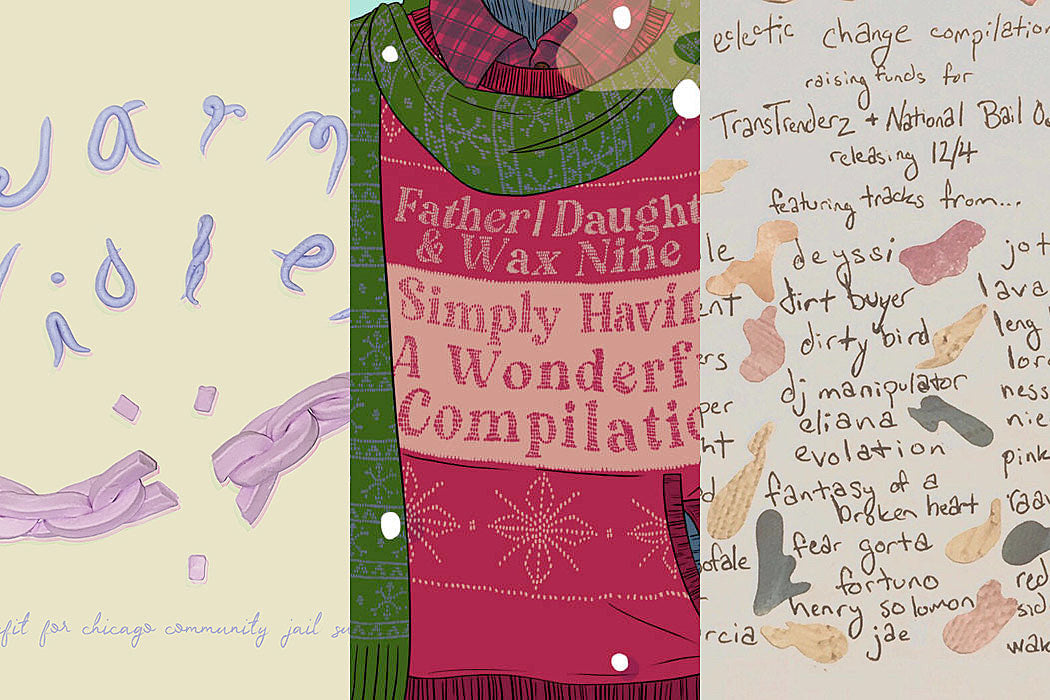 arm
iole
fit for chicago community jail su
Father/Daught
& Wax Nine
Simply Havin
A Wonderf
Compilatio
eclectic change compilation
raising funds for
TransTrenderz + National Bail Ou
releasing 12/4
featuring tracks from...
le deyssi jot
ent dirt buyer lava
ers dirty bird leng
dj manipulator lor
per eliana ness
ht evolation nie
fantasy of a pink
d broken heart raav
ofale fear gorta
r fortuno red
henry solomon sid
rcia jae wak